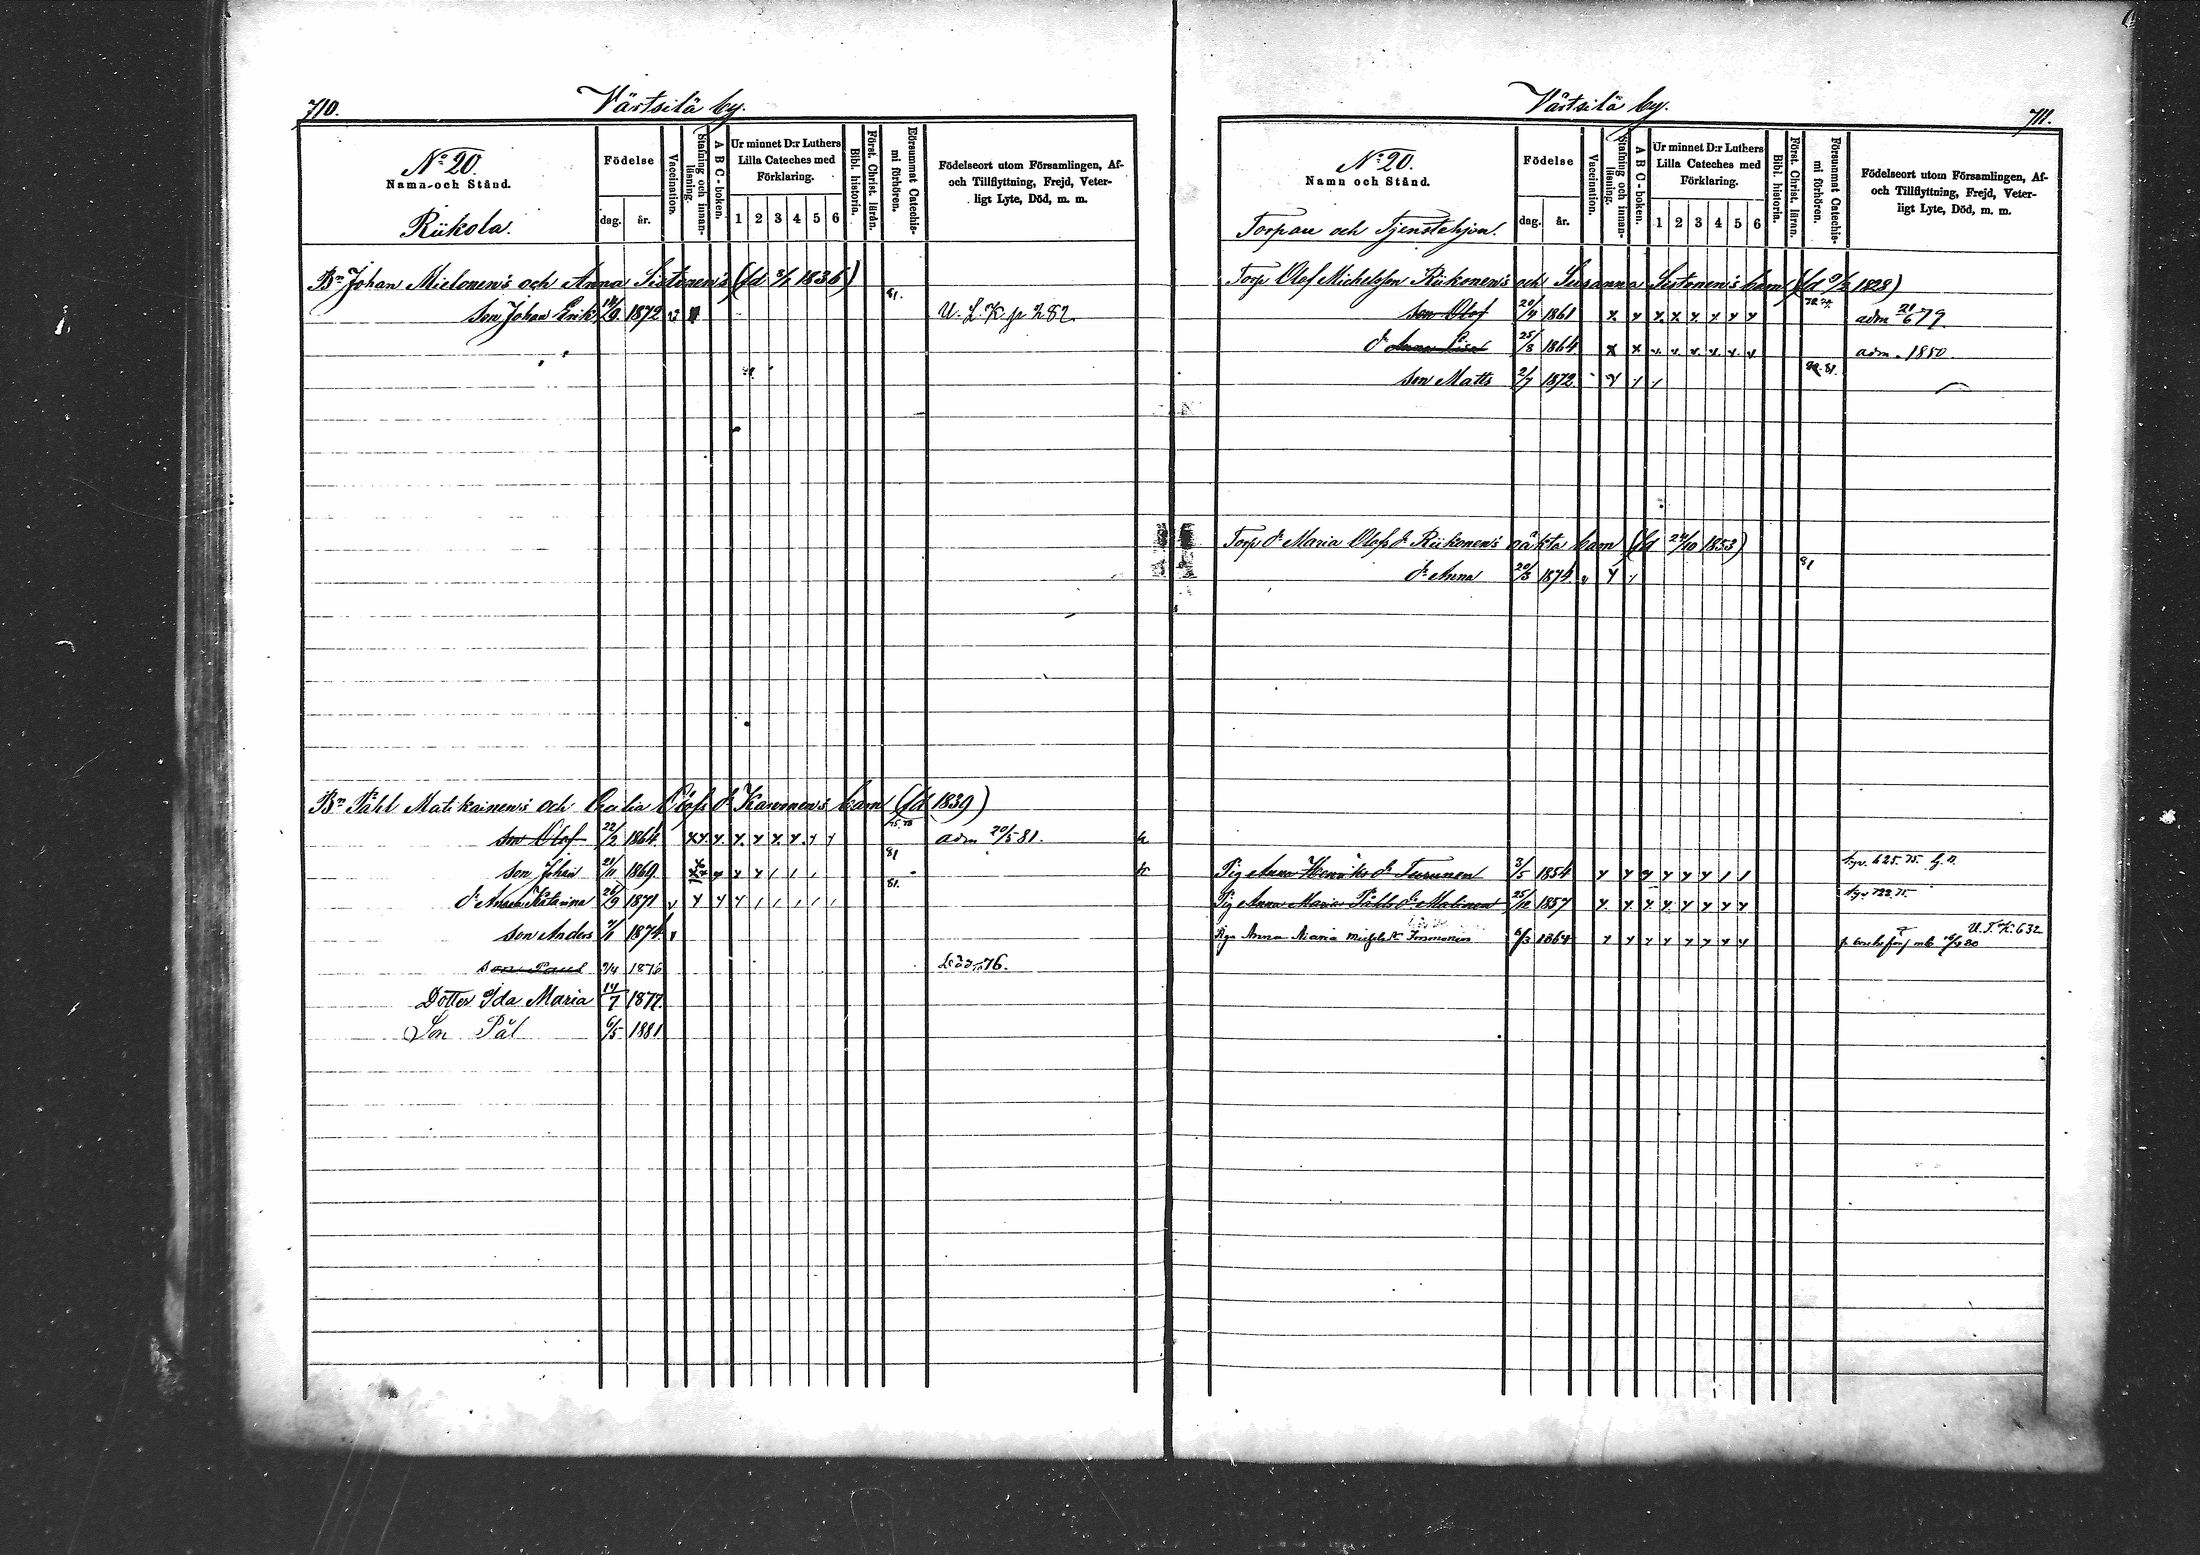 710.
Värtsilä by.
No 20.
Namn och Stånd.
Riikola.
Födelse
dag. år.
Vaccination.
Stafning och innanläsning.
A B C-boken.
Ur minnet D:r Luthers
Lilla Cateches med
Förklaring.
1 2 3 4 5 6
Bibl. historia.
Först. Christ. läran.
Försummat Catechismi förhören.
Födelseort utom Församlingen, Af-
och Tillflyttning, Frejd, Veter-
ligt Lyte, Död, m. m.
Bn Johan Mielonen's och Anna Sistonen's (fd 1836)
81.
son Johan Erik 1872 U. L. K. p 282
Bn Påhl Matikainen's och Cecilia Olofs dr Karvinen's barn (fd 1839)
75. 78
son Olof 22/2 1864 x x. x x. x x. x x adm 20/5 81.
81
son Johan 21/11 1869
81.
dr Anna Katarina 26/9 1871
son Anders 1874
son Paul 1876 död 76.
Dotter Ida Maria 14/7 1877.
Son Pål 6/5 1881
Värtsilä by.
711.
No 20.
Namn och Stånd.
Torpare och Tjenstehjon.
Födelse
dag. år.
Vaccination.
Stafning och innanläsning.
A B C-boken.
Ur minnet D:r Luthers
Lilla Cateches med
Förklaring.
1 2 3 4 5 6
Bibl. historia.
Först. Christ. läran.
Försummat Catechismi förhören.
Födelseort utom Församlingen, Af-
och Tillflyttning, Frejd, Veter-
ligt Lyte, Död, m. m.
Torp Olof Michelsson Riikonen's och Susanna Sistonen's barn (fd 1828)
son Olof 20/4 1861 x x x x x x x x adm 21/6 79
dr Anna Lisa 25/8 1864 x x x x x x x x adm. 1880.
80. 81.
son Matts 2/7 1872
Torp dr Maria Olofs dr Riikonen's oäkta barn (fd 24/10 1853)
81
dr Anna 20/3 1874
Pig Anna Henriks dr Turunen 3/5 1854 625. 75.
Pig Anna Maria Påhls dr Malinen 25/12 1857 722. 75.
U. T. K. 632
Piga Anna Maria Michels dr 6/3 1864